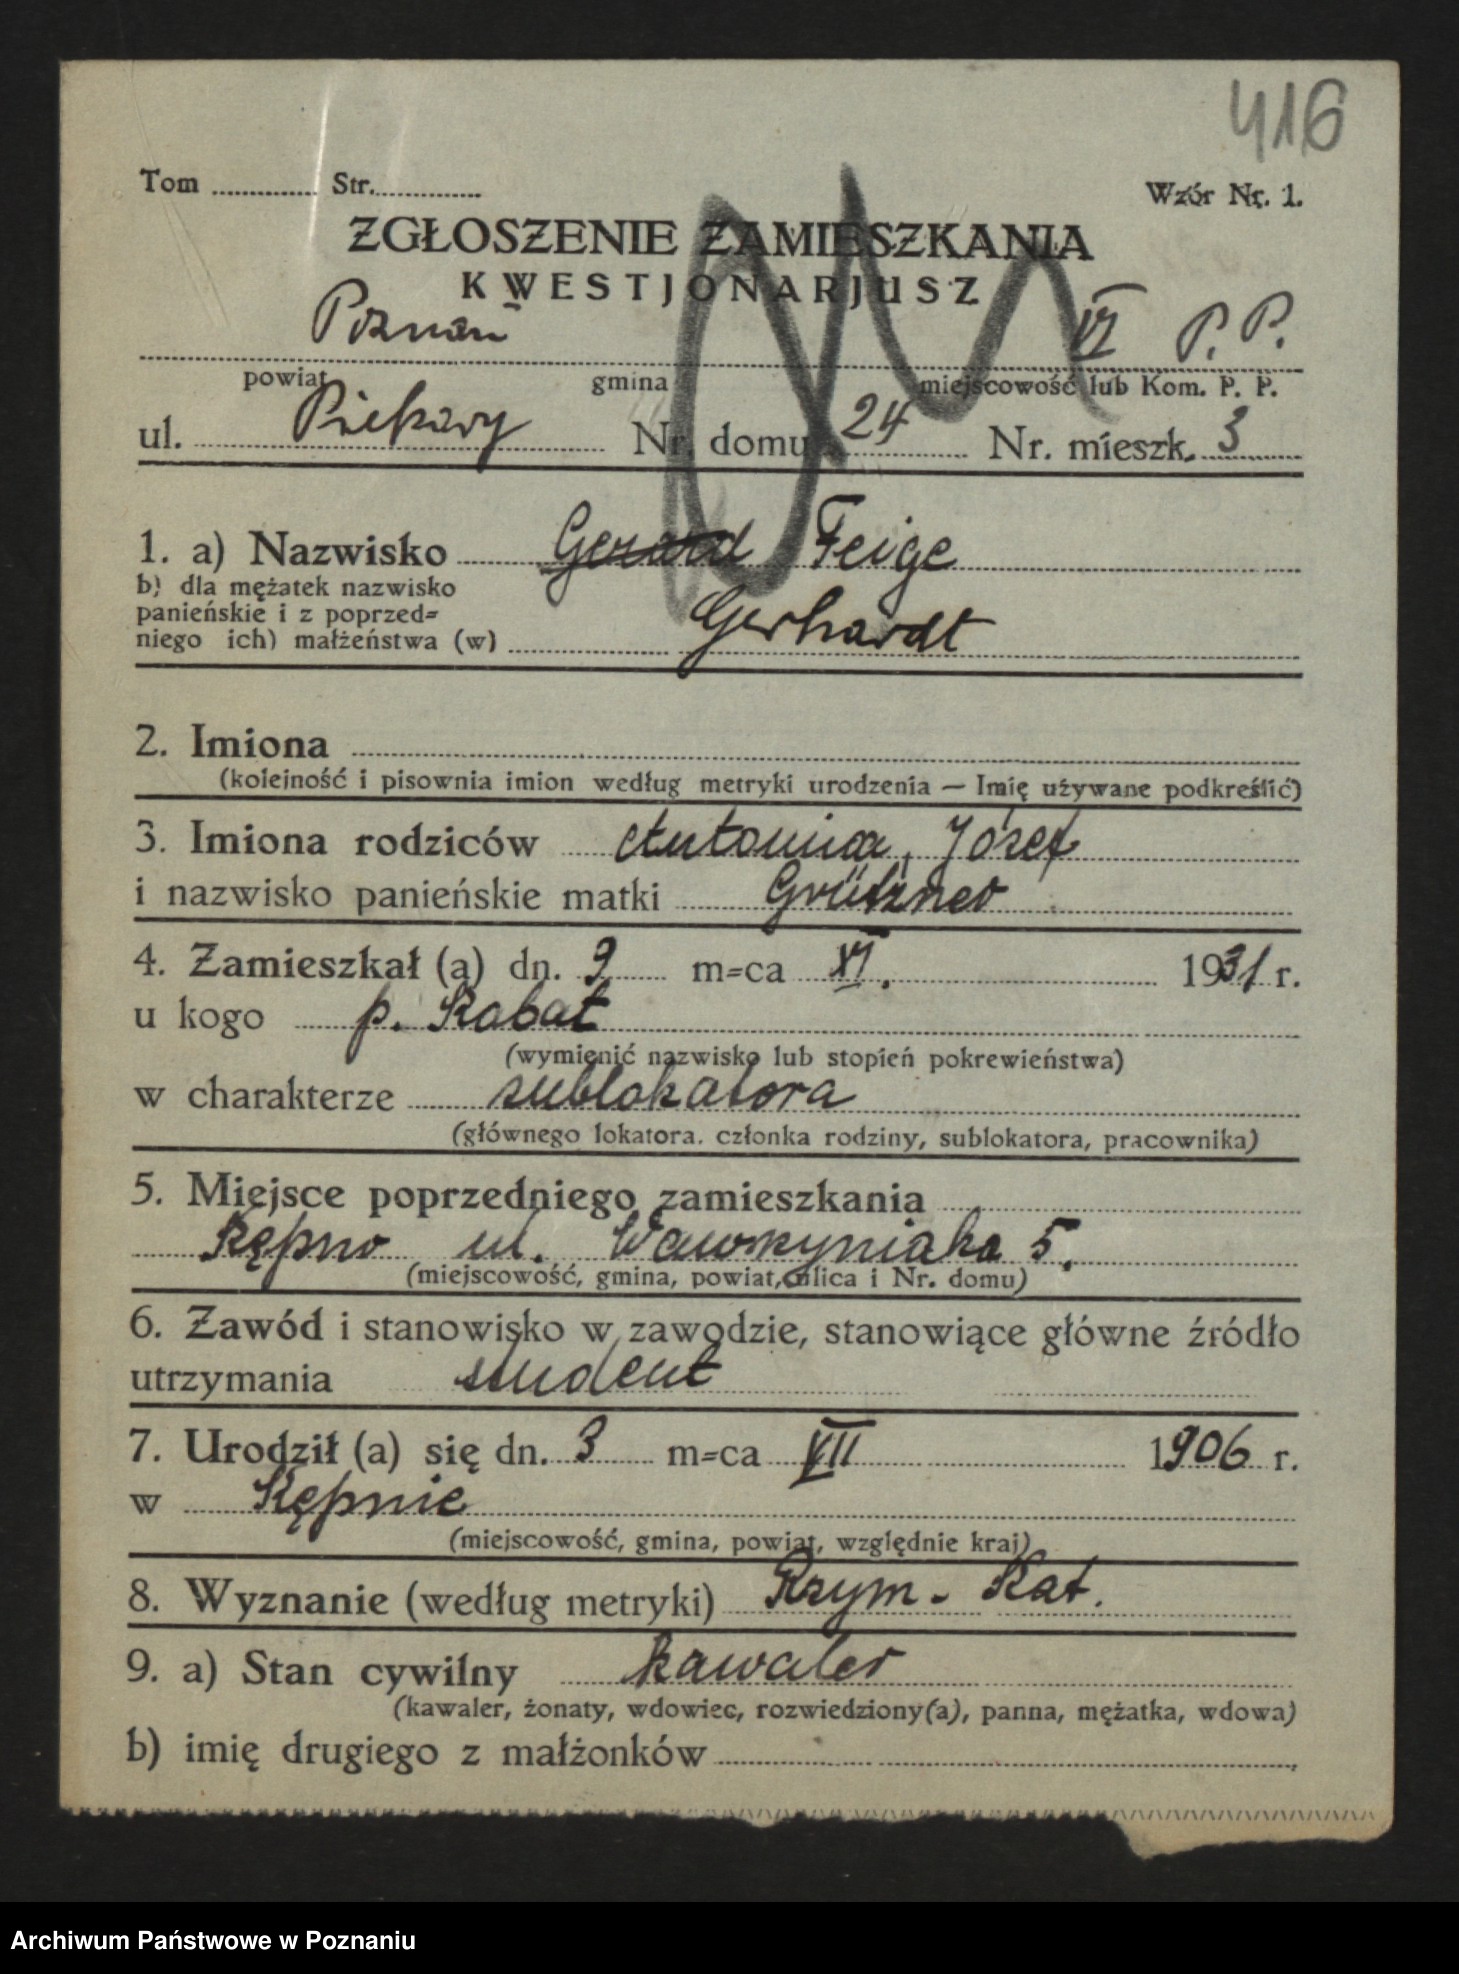 416
Tom ............ Str. ............
Wzór Nr. 1.
ZGŁOSZENIE ZAMIESZKANIA
KWESTJONARJUSZ
Poznań VI P. P.
powiat gmina miejscowość lub Kom. P. P.
ul. Piekary Nr. domu 24 Nr. mieszk. 3
1. a) Nazwisko Gerard Feige
b) dla mężatek nazwisko
panieńskie i z poprzed=
niego ich) małżeństwa (w) Gerhardt
2. Imiona
(kolejność i pisownia imion według metryki urodzenia — Imię używane podkreślić)
3. Imiona rodziców Antonina, Józef
i nazwisko panieńskie matki Grützner
4. Zamieszkał (a) dn. 9 m=ca XI. 1931 r.
u kogo p. Kabat
(wymienić nazwisko lub stopień pokrewieństwa)
w charakterze sublokatora
(głównego lokatora. członka rodziny, sublokatora, pracownika)
5. Miejsce poprzedniego zamieszkania
Kępno ul. Wawrzyniaka 5.
(miejscowość, gmina, powiat, ulica i Nr. domu)
6. Zawód i stanowisko w zawodzie, stanowiące główne źródło
utrzymania student
7. Urodził (a) się dn. 3 m=ca VII 1906 r.
w Kępnie
(miejscowość, gmina, powiat, względnie kraj)
8. Wyznanie (według metryki) Rzym. Kat.
9. a) Stan cywilny kawaler
(kawaler, żonaty, wdowiec, rozwiedziony(a), panna, mężatka, wdowa)
b) imię drugiego z małżonków
Archiwum Państwowe w Poznaniu